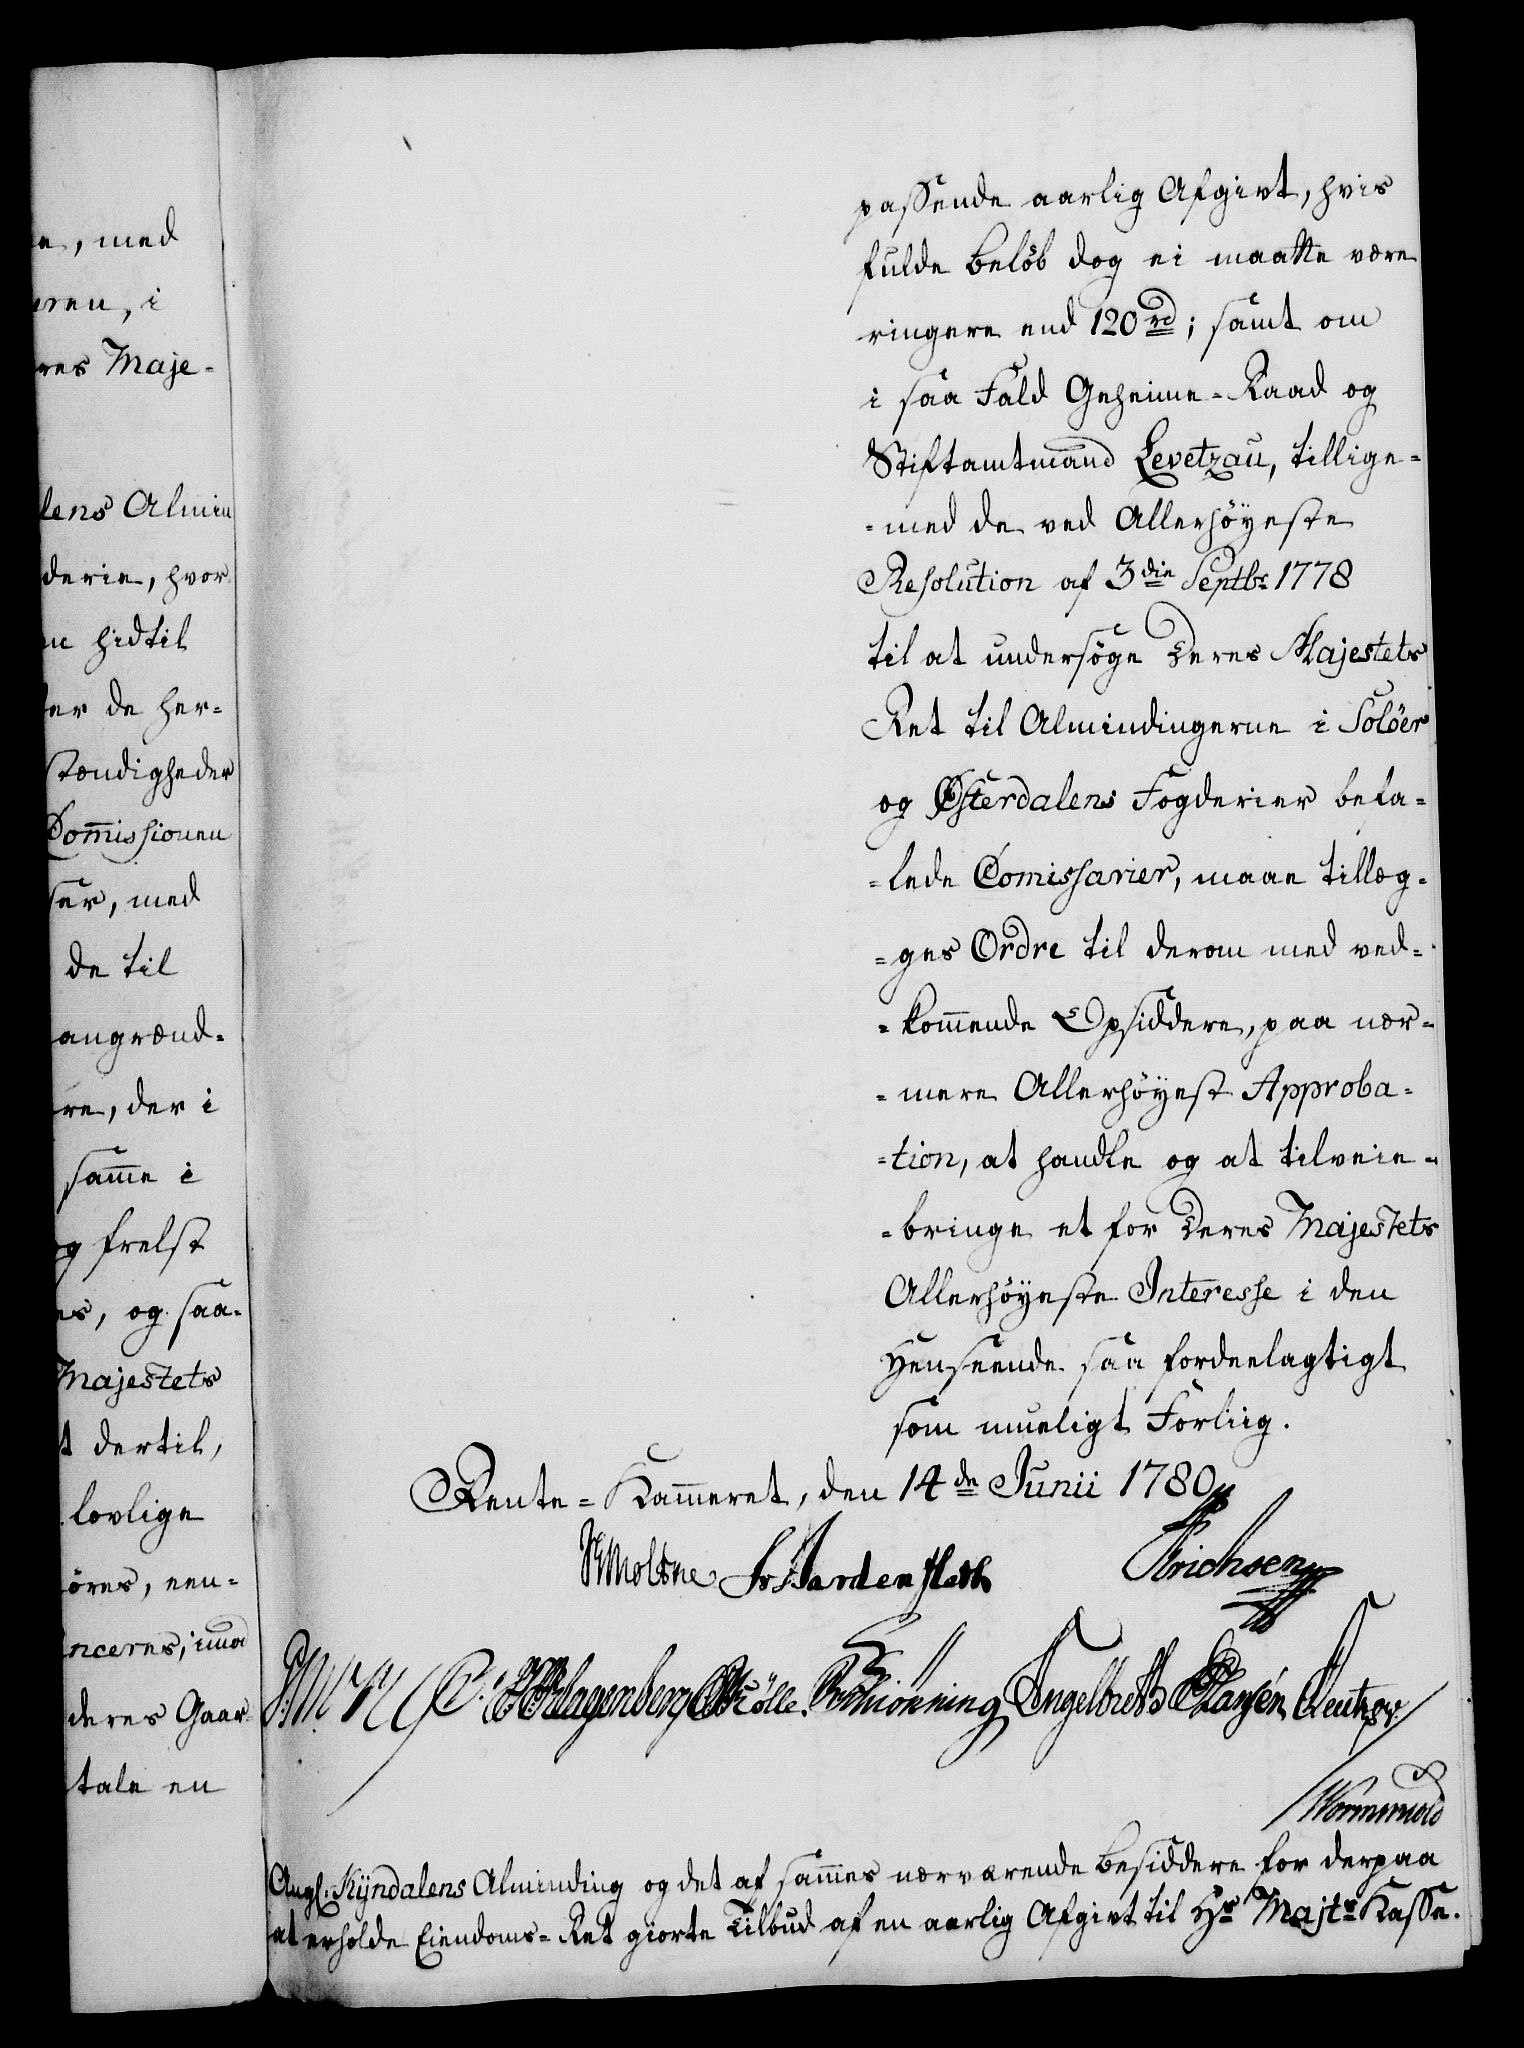 e, med
eren, i
res Maje-
lens Almin
derie, hvor
n hidtil
ter de her-
stændigheder
Com̄issionen
ser, med
de til
angrænd-
re, der i
sam̄e i
og frelst
es, og saa-
Majestets
t dertil,
lovlige
öres, een-
nceres, imod
deres Gaar-
tale en
passende aarlig Afgivt, hvis
fulde Belöb dog ei maatte være
ringere end 120 rd; samt om
i saa Fald Geheime-Raad og
Stiftamtmand Levetzau, tillige-
-med de ved Allerhöyeste
Resolution af 3die Septbr 1778
til at undersöge Deres Majestets
Ret til Almindingerne i Solöer
og Østerdalens Fogderier befa-
-lede Comissarier, maae tillæg-
-ges Ordre til derom med ved-
-kom̄ende Opsiddere, paa nær-
-mere Allerhöyest Approba-
-tion, at handle og at tilveie-
-bringe et for Deres Majestets
Allerhöyeste Interesse i den
Henseende saa fordeelagtigt
som mueligt Forliig.
Rente-Kam̄eret, den 14de Junii 1780
Moltke Hardenfleth Erichsen
Klagenberg Mölle. Schiönning Engelbreth Hansén
Wormwold
Angl. Kÿndalens Alminding og det af sam̄es nærværende Besiddere for derpaa
at erholde Eiendoms-Ret giorte Tilbud af en aarlig Afgivt til Hs Majts Kasse.